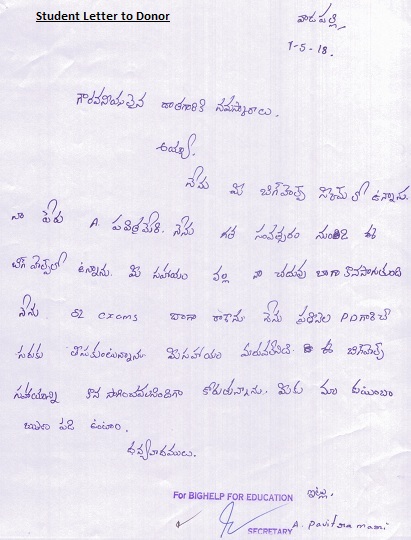 Student Letter to Donor
వాడపల్లి
1-5-18.
గౌరవనీయులైన దాతగారికి నమస్కారాలు.
అయ్యా,
నేను మీ బిగ్‌హెల్ప్ స్కీమ్ లో ఉన్నాను.
నా పేరు A. పవిత్రమేరి. నేను గత సంవత్సరం నుండి ఈ
బిగ్ హెల్ప్‌లో ఉన్నాను. మీ సహాయం వల్ల నా చదువు బాగా కొనసాగుతుంది
నేను exams బాగా రాశాను. నేను ప్రతినెల
మీసహాయం మరువలేనిది ఈ బిగ్‌హెల్ప్
సహాయాన్ని కోరుతున్నాను. మీకు మా కుటుంబం
ఋణ పడి ఉంటాం.
ధన్యవాదములు.
ఇట్లు.
For BIGHELP FOR EDUCATION
SECRETARY
A. Pavitra